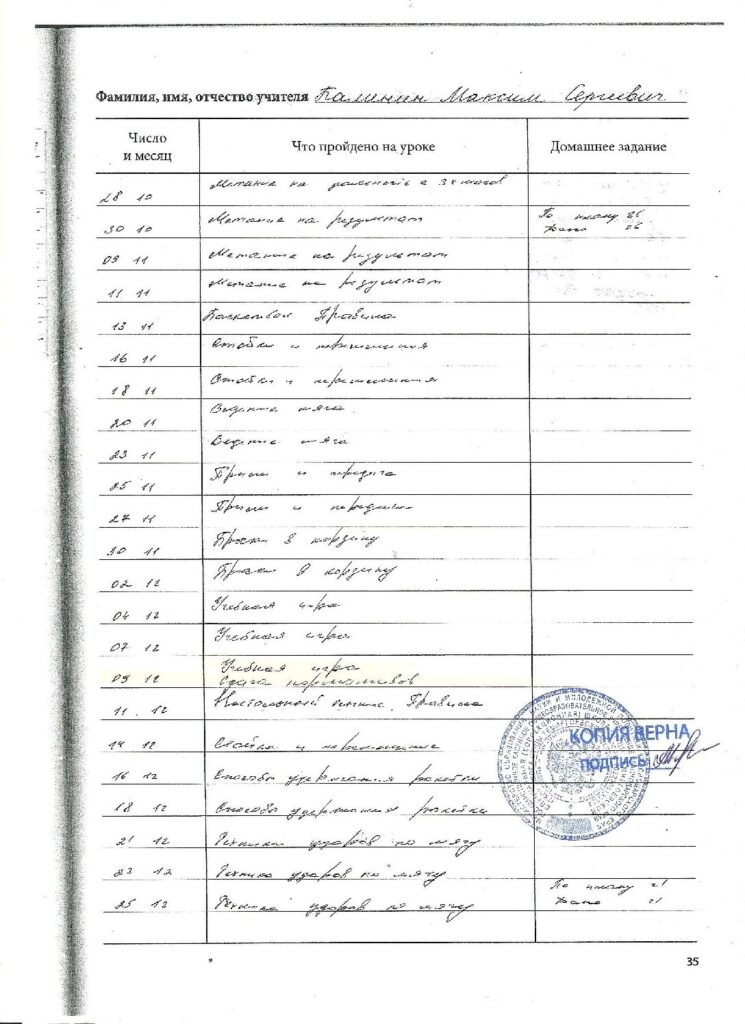 Фамилия, имя, отчество учителя Калинин Максим Сергеевич
Число и месяц Что пройдено на уроке Домашнее задание
28 10 Метание на дальность с 3х шагов
30 10 Метание на результат По плану 26
Дано 26
09 11 Метание на результат
11 11 Метание на результат
13 11 Баскетбол Правила
16 11 Стойки и перемещения
18 11 Стойки и перемещения
20 11 Ведение мяча
23 11 Ведение мяча
25 11 Прием и передача
27 11 Прием и передача
30 11 Броски в корзину
02 12 Броски в корзину
04 12 Учебная игра
07 12 Учебная игра
09 12 Учебная игра
Сдача нормативов
11 12 Настольный теннис. Правила
14 12 Стойка и перемещение
КОПИЯ ВЕРНА
ПОДПИСЬ
16 12 Способы удержания ракетки
18 12 Способы удержания ракетки
21 12 Техника ударов по мячу
23 12 Техника ударов по мячу
25 12 Техника ударов по мячу По плану 21
Дано 21
35